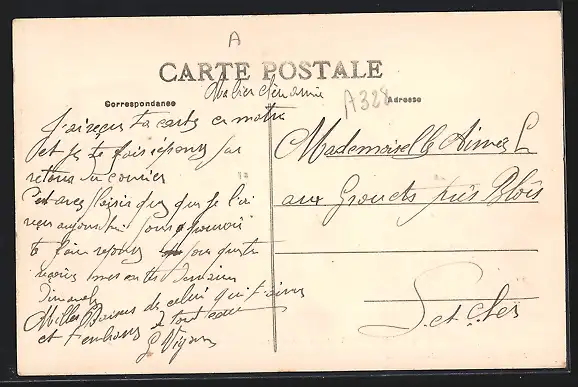 A
CARTE POSTALE
Correspondance
Adresse
A328
ma bien chère amie
J'ai reçu ta carte ce matin
et je te fais réponse par
retour du courrier
C'est avec plaisir que je l'ai
reçu aujourd'hui pour pouvoir
te faire réponse pour que tu
demain
Dimanche
Milles Baisers de celui qui t'aime
et t'embrasse de tout cœur
Mademoiselle Aimée L
aux Grouets près Blois
L et Cher